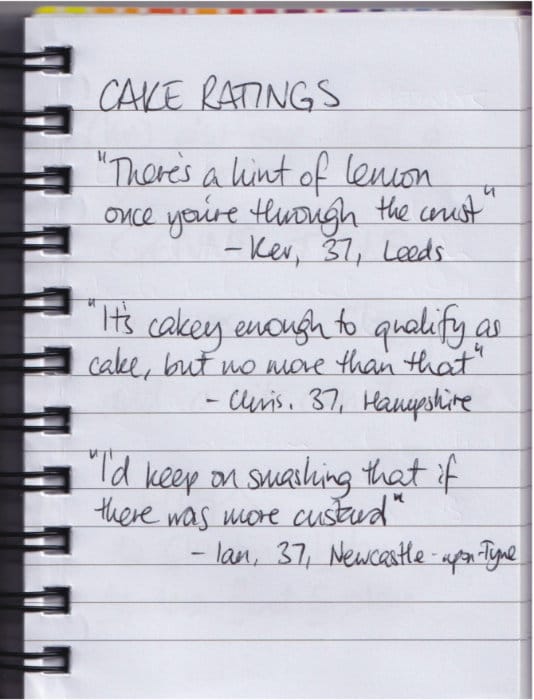 CAKE RATINGS
"There's a hint of lemon
once you're through the crust"
- Kev, 37, Leeds
"It's cakey enough to qualify as
cake, but no more than that"
- Chris. 37, Hampshire
"I'd keep on smashing that if
there was more custard"
- Ian, 37, Newcastle-upon-Tyne